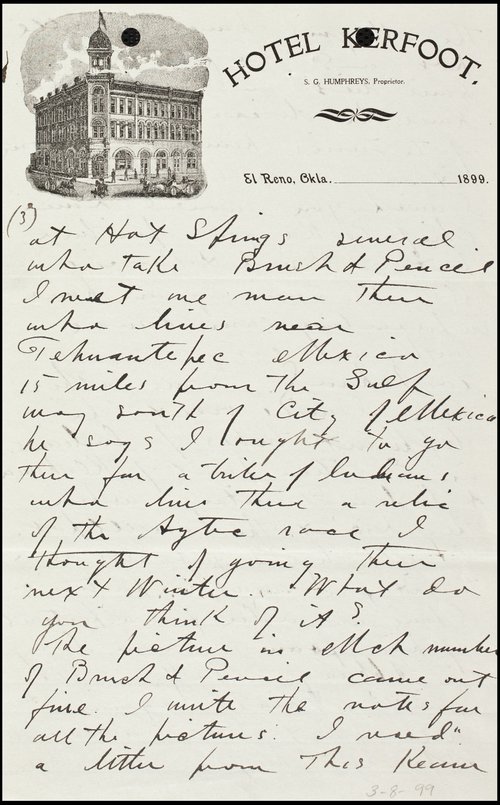 HOTEL KERFOOT.
S. G. HUMPHREYS, Proprietor.
El Reno, Okla. 1899.
(3)
at Hot Springs several
who take Brush & Pencil
I met one man there
who lives near
Tehuantepec Mexico
15 miles from the Gulf
way south of City of Mexico
he says I ought to go
there for a tribe of Indians
who live there a relic
of the Aztec race I
thought of going there
next Winter. What do
you think of it?
The picture in Mch number
of Brush & Pencil came out
fine. I write the notes for
all the pictures. I used
a letter from this Keam
3-8-99